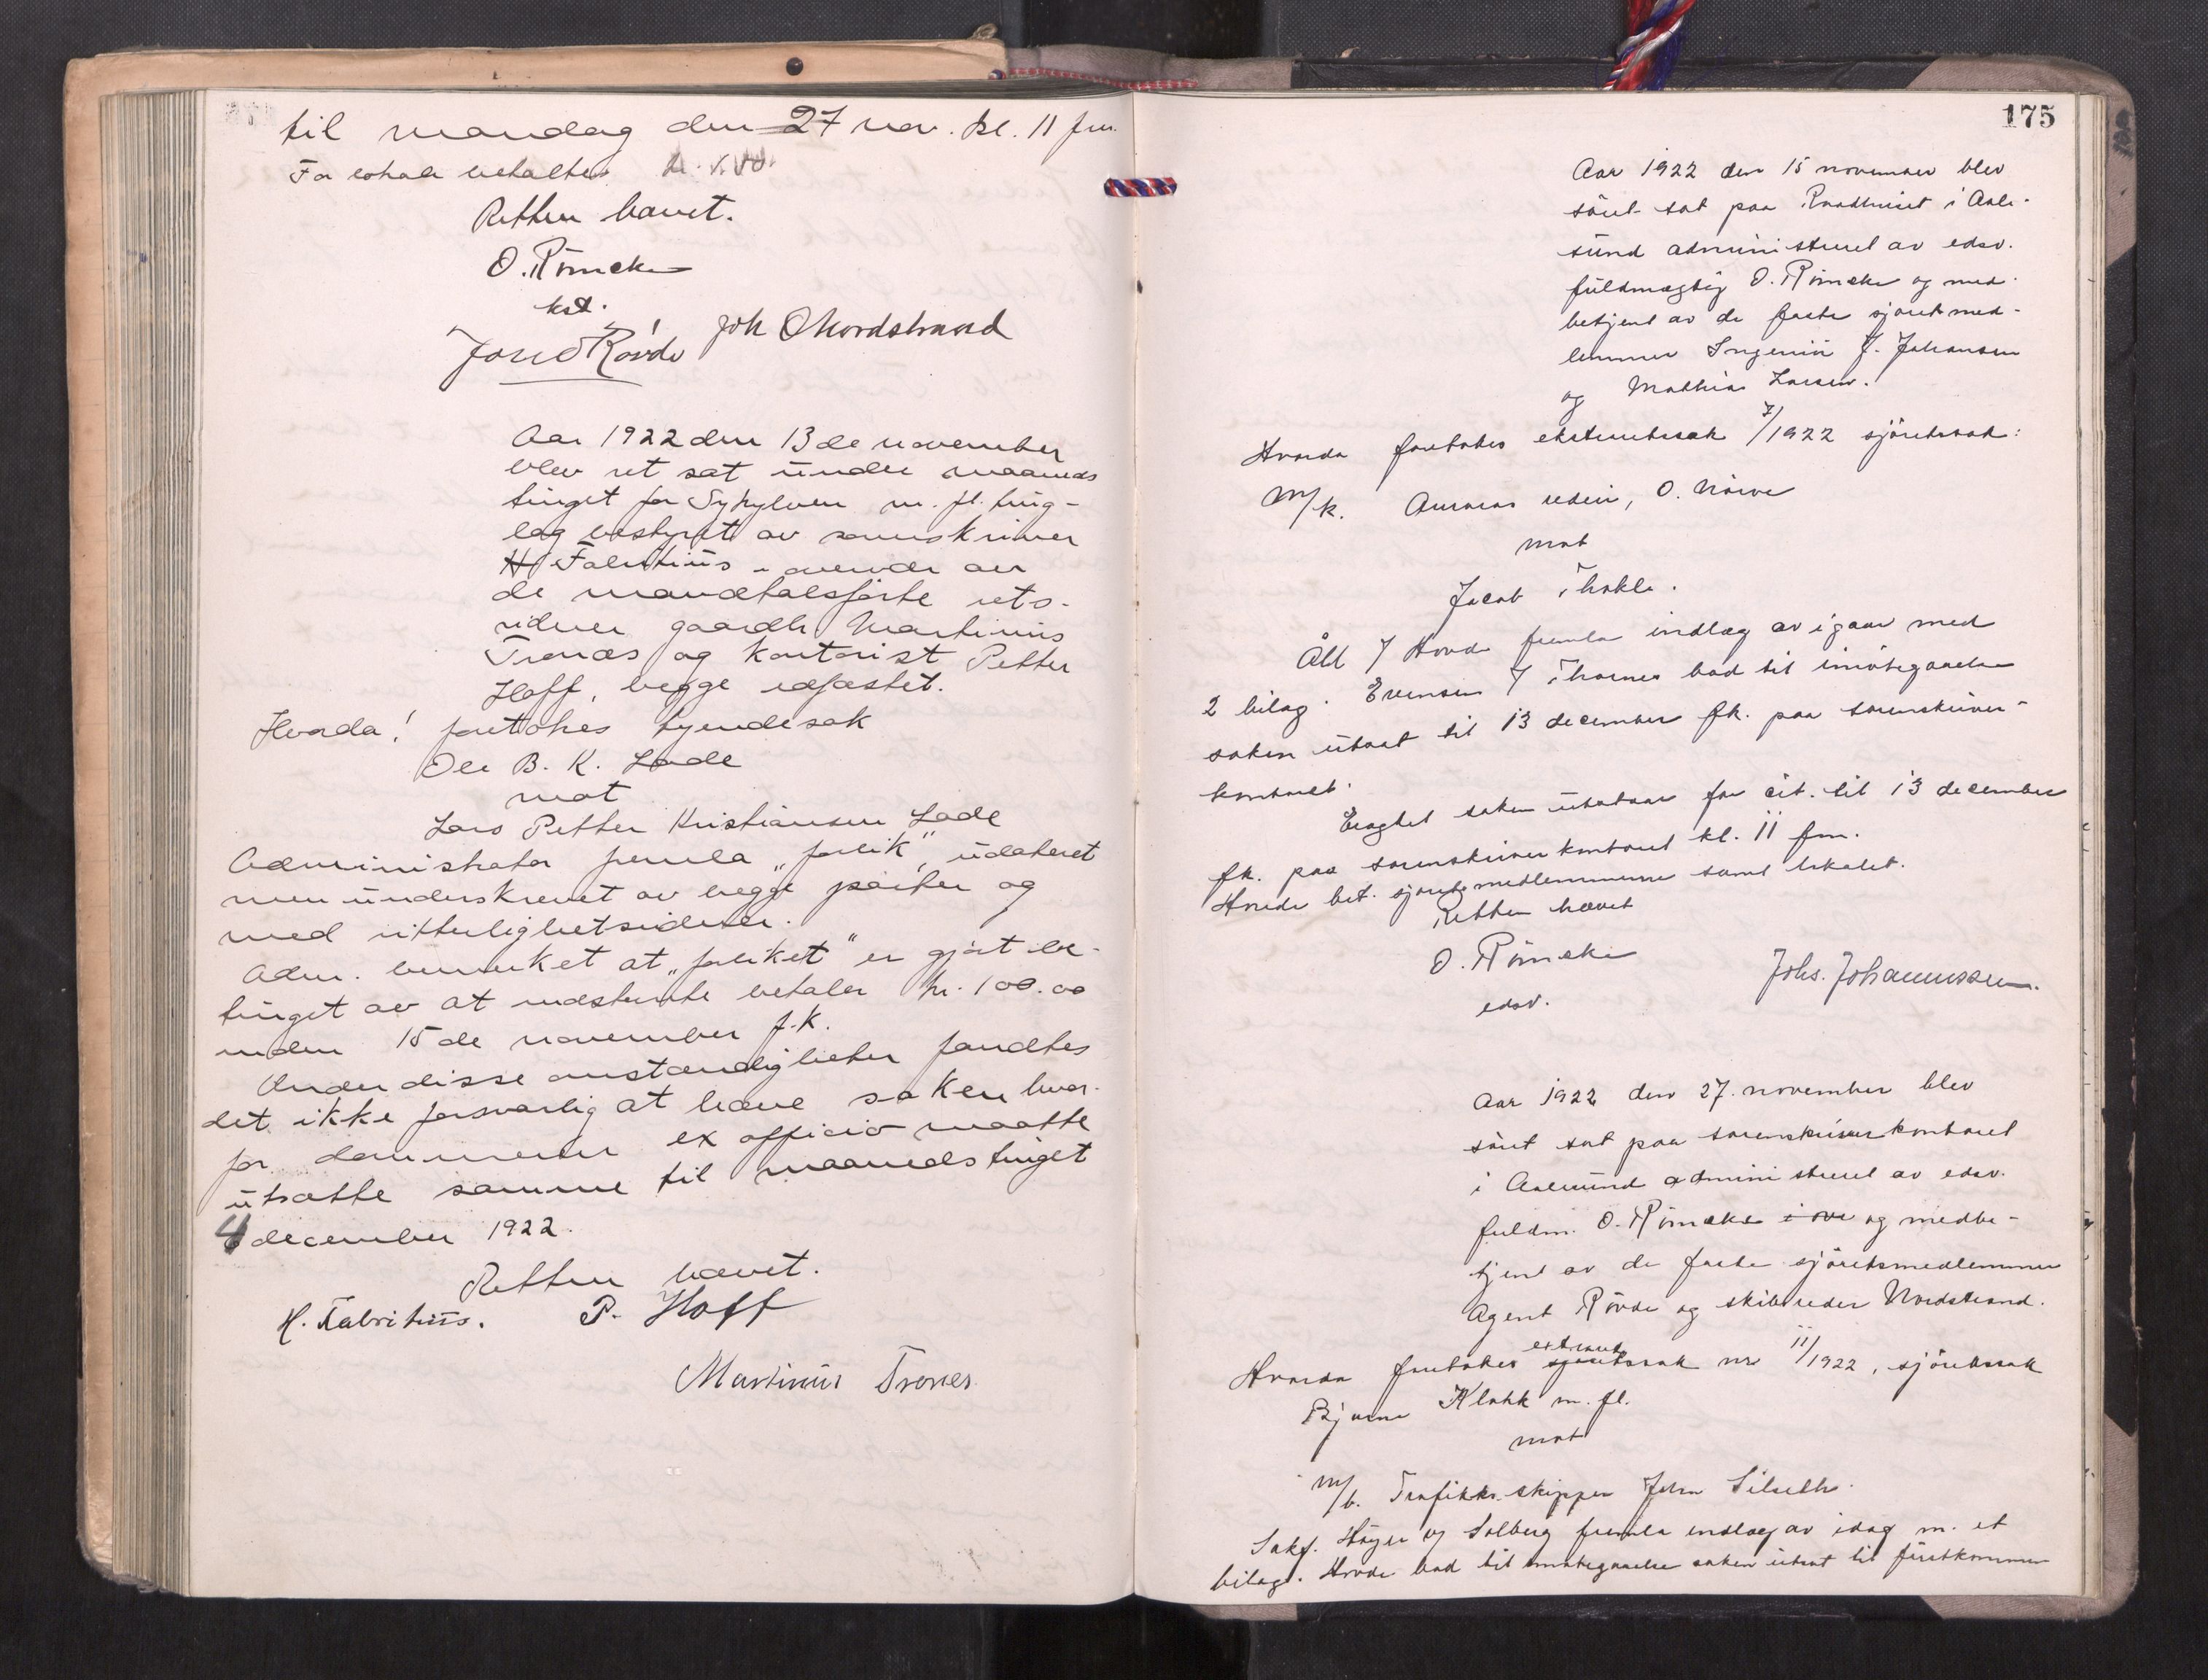 til mandag den 27 nov. kl. 11 fm.
For lokale betaltes kr.
Retten hævet.
O. Römcke
kst.
Joh O Nordstrand
Rövde
Aar 1922 den 13de november
blev ret sat under maaneds
tinget for Sykylven m. fl. ting-
lag bestyret av sorenskriver
H. Fabritius i overvær av
de mandtalsförte rets-
vidner gaardbr. Martinus
Tronæs og kontorist Petter
Hoff, begge edfæstet.
Hvorda! foretokes tyendesak
Ole B. K. Lade
mot
Lars Petter Kristiansen Lade
Administrator fremla "forlik", udateret
men underskrevet av begge parter og
med vitterlighetsvidner.
Adm. bemerket at "forliket" er gjort be-
tinget av at indstevnte betaler kr. 100.00
inden 15de november f.k.
Under disse omstændigheter fandtes
det ikke forsvarlig at hæve saken hvor-
for dommeren ex officio maatte
utsætte samme til maanedstinget
4 december 1922.
Retten hævet.
H. Fabritius. P. Hoff
Martinus Trones
175
Aar 1922 den 15 november blev
söret sat paa Raadhuset i Aale-
sund administreret av edsv.
fuldmægtig O. Römcke og med-
betjent av de faste sjöretsmed-
lemmer Ingeniör J. Johansen
og Mathias Larsen.
Hvorda foretokes ekstraretssak 7/1922 sjöretssak:
M/k. Aurnes rederi, O. Nörve
mot
Jacob Thokle.
Åll f Hovde fremla indlæg av igaar med
2 bilag. Evensen f Thornes bad til imötegaaelse
saken utsat til 13 december fk. paa sorenskriver-
kontoret.
Eragtet saken utsættes for cit. til 13 december
fk. paa sorenskriverkontoret kl. 11 fm.
Hovde bet. sjöretsmedlemmerne samt lokalet.
Retten hævet
O. Römcke
edsv.
Johs. Johannessen.
Aar 1922 den 27. november blev
söret sat paa sorenskriverkontoret
i Aalesund administreret av edsv.
fuldm. O. Römcke i ove og medbe-
tjent av de faste sjöretsmedlemmer
Agent Rövde og skibsreder Nordstrand.
extraret
Hvorda foretokes sjöretssak nr 11/1922, sjöretssak
Bjarne Klokk m. fl.
mot
M/b. Trafikks skipper John Silseth.
Sakf. Höyer og Solberg fremla indlæg av idag m. et
bilag. Hovde bad til imötegaaelse saken utsat til förstkommen